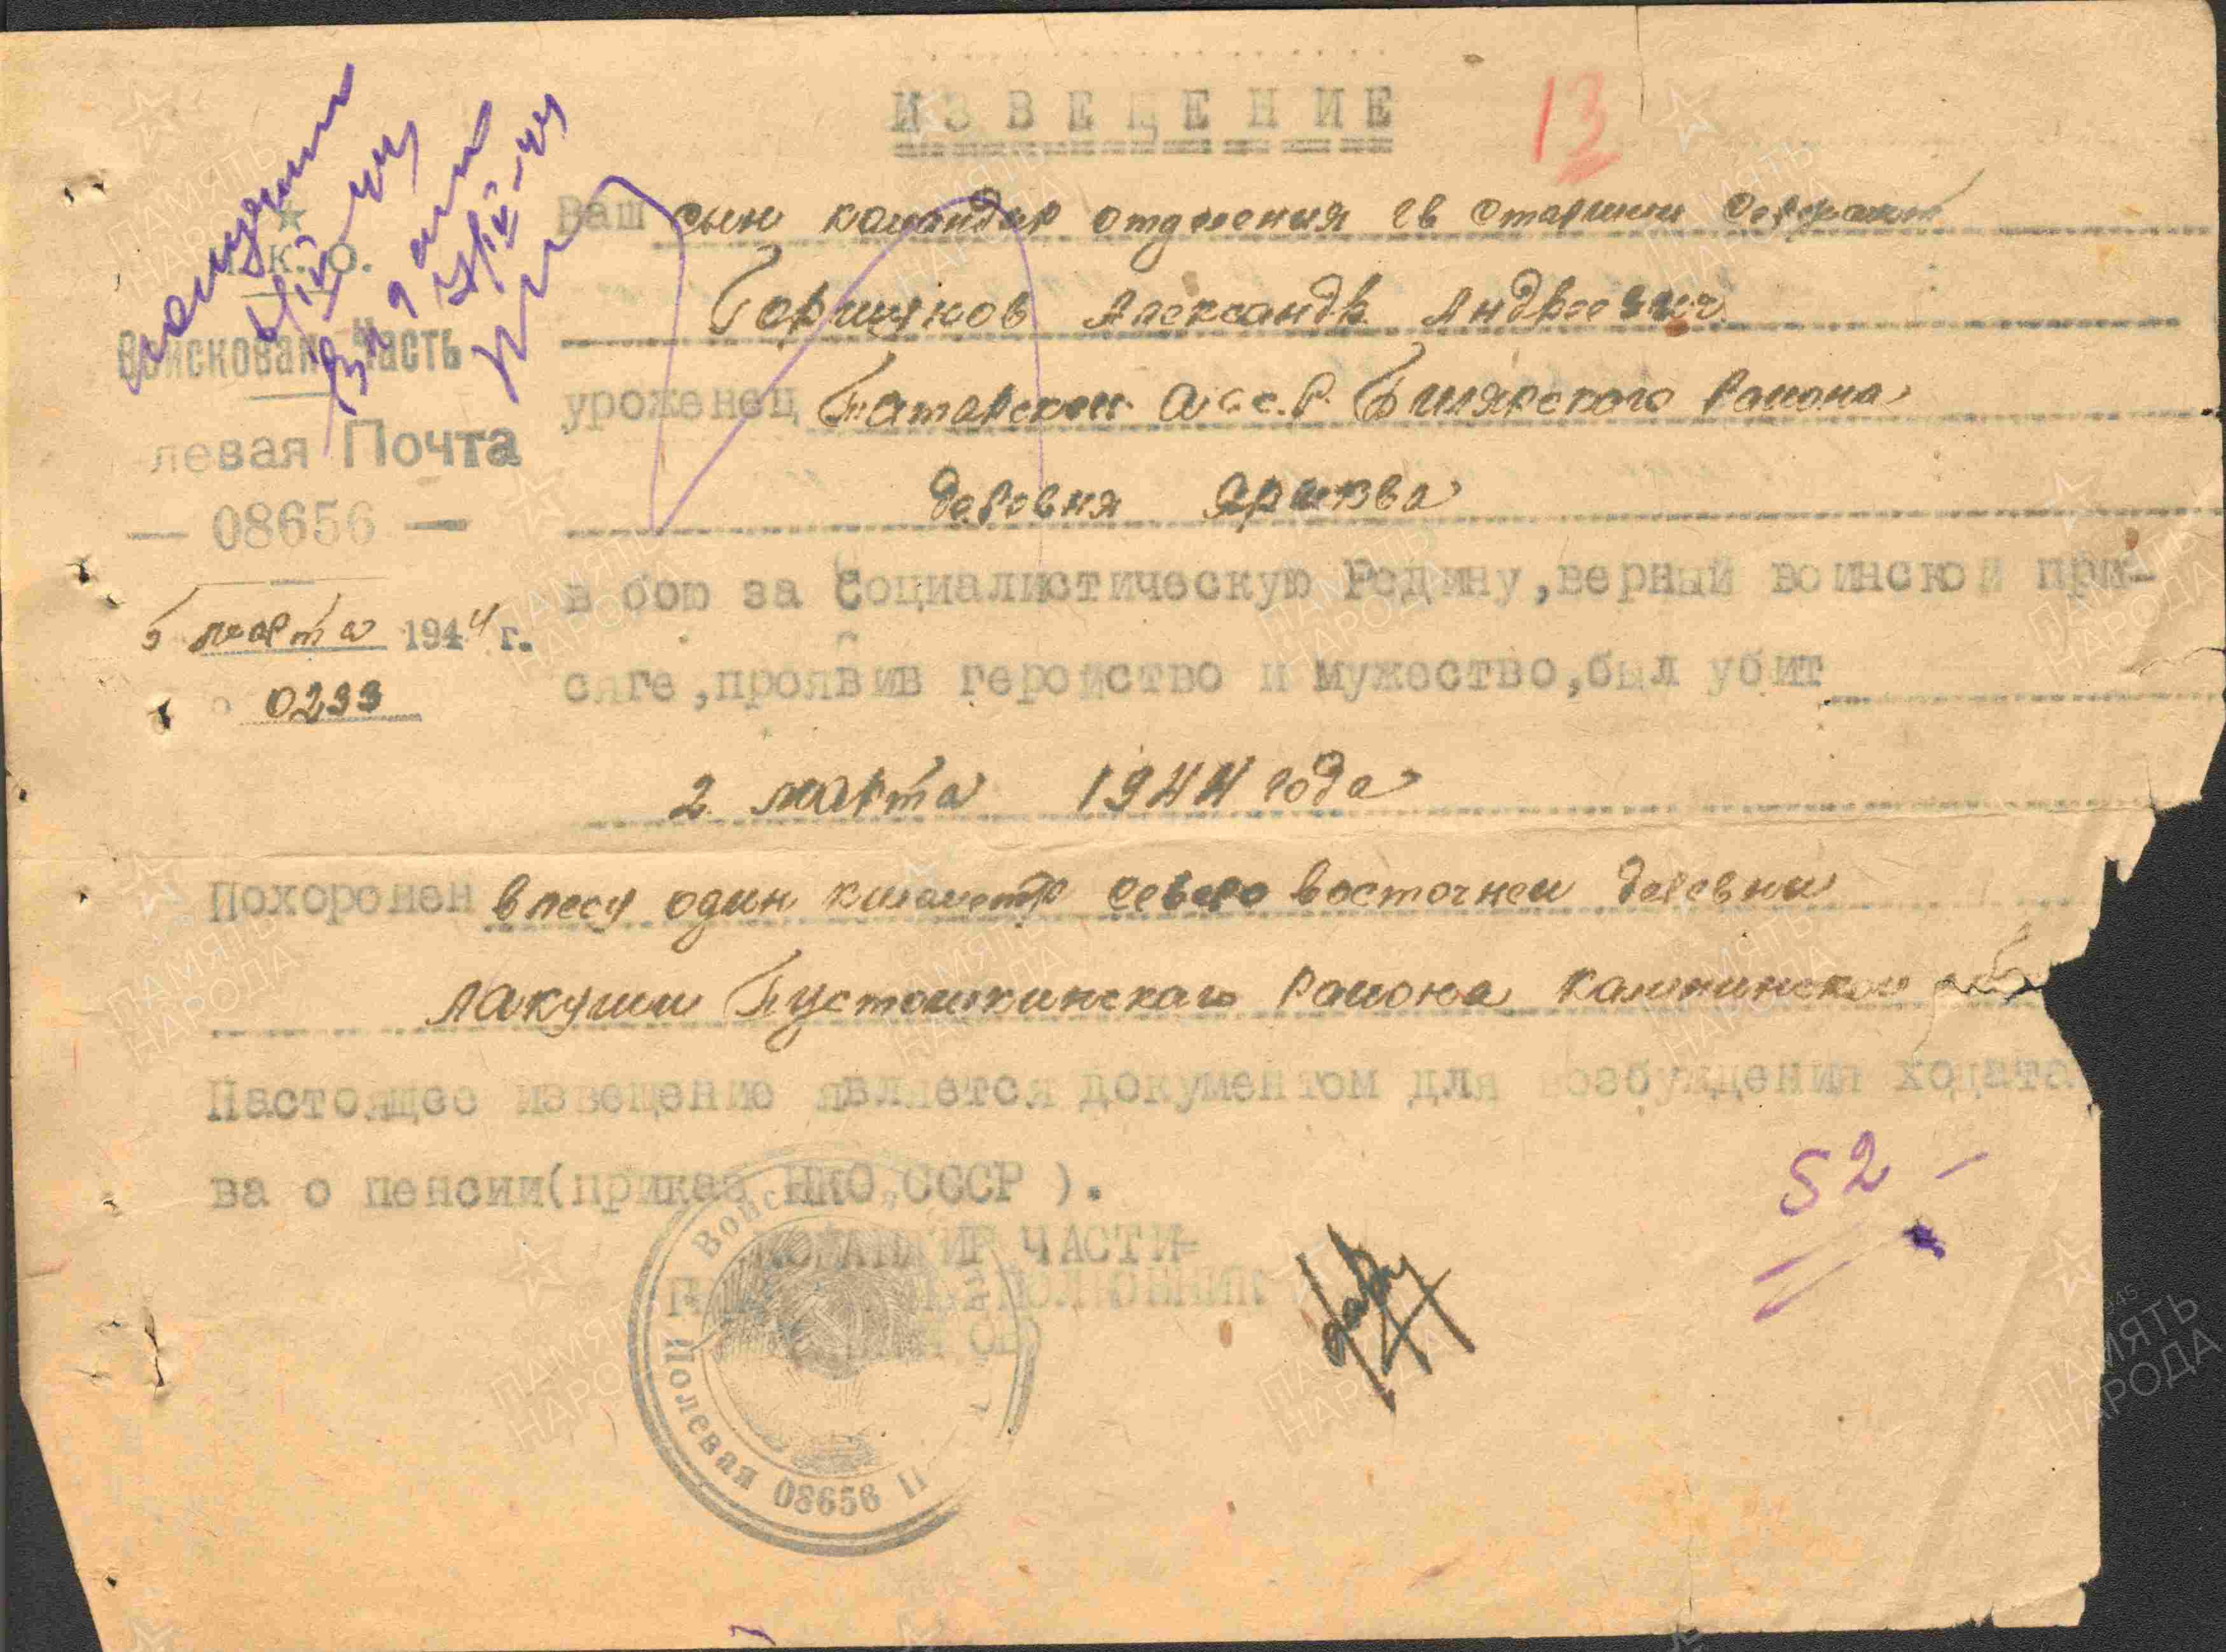 ИЗВЕЩЕНИЕ
13
Ваш сын командир отделения гв старший сержант
Горшунов Александр Андреевич
уроженец Татарской А.С.С.Р. Билярского района
деревня
К. О.
Войсковая Часть
левая Почта
— 08656 —
5 марта 1944 г.
0233
в бою за Социалистическую Родину, верный воинской при-
сяге, проявив геройство и мужество, был убит
2 марта 1944 года
Похоронен в лесу один километр северо восточней деревни
Лакуши Пустошкинскаго района Калининской обл
Настоящее извещение является документом для возбуждения ходата
ва о пенсии (приказ НКО, СССР ).
КОМАНДИР ЧАСТИ-
52 -
Полевая 08656 П
ПАМЯТЬ
НАРОДА